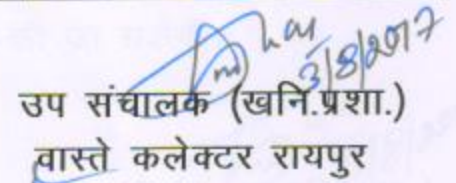 3/8/2017
उप संचालक (खनि.प्रशा.)
वास्ते कलेक्टर रायपुर